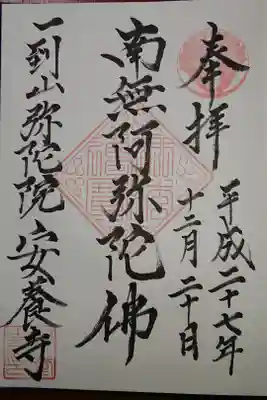 奉拝
平成二十七年
十二月二十日
南無阿弥陀佛
一到山弥陀院安養寺